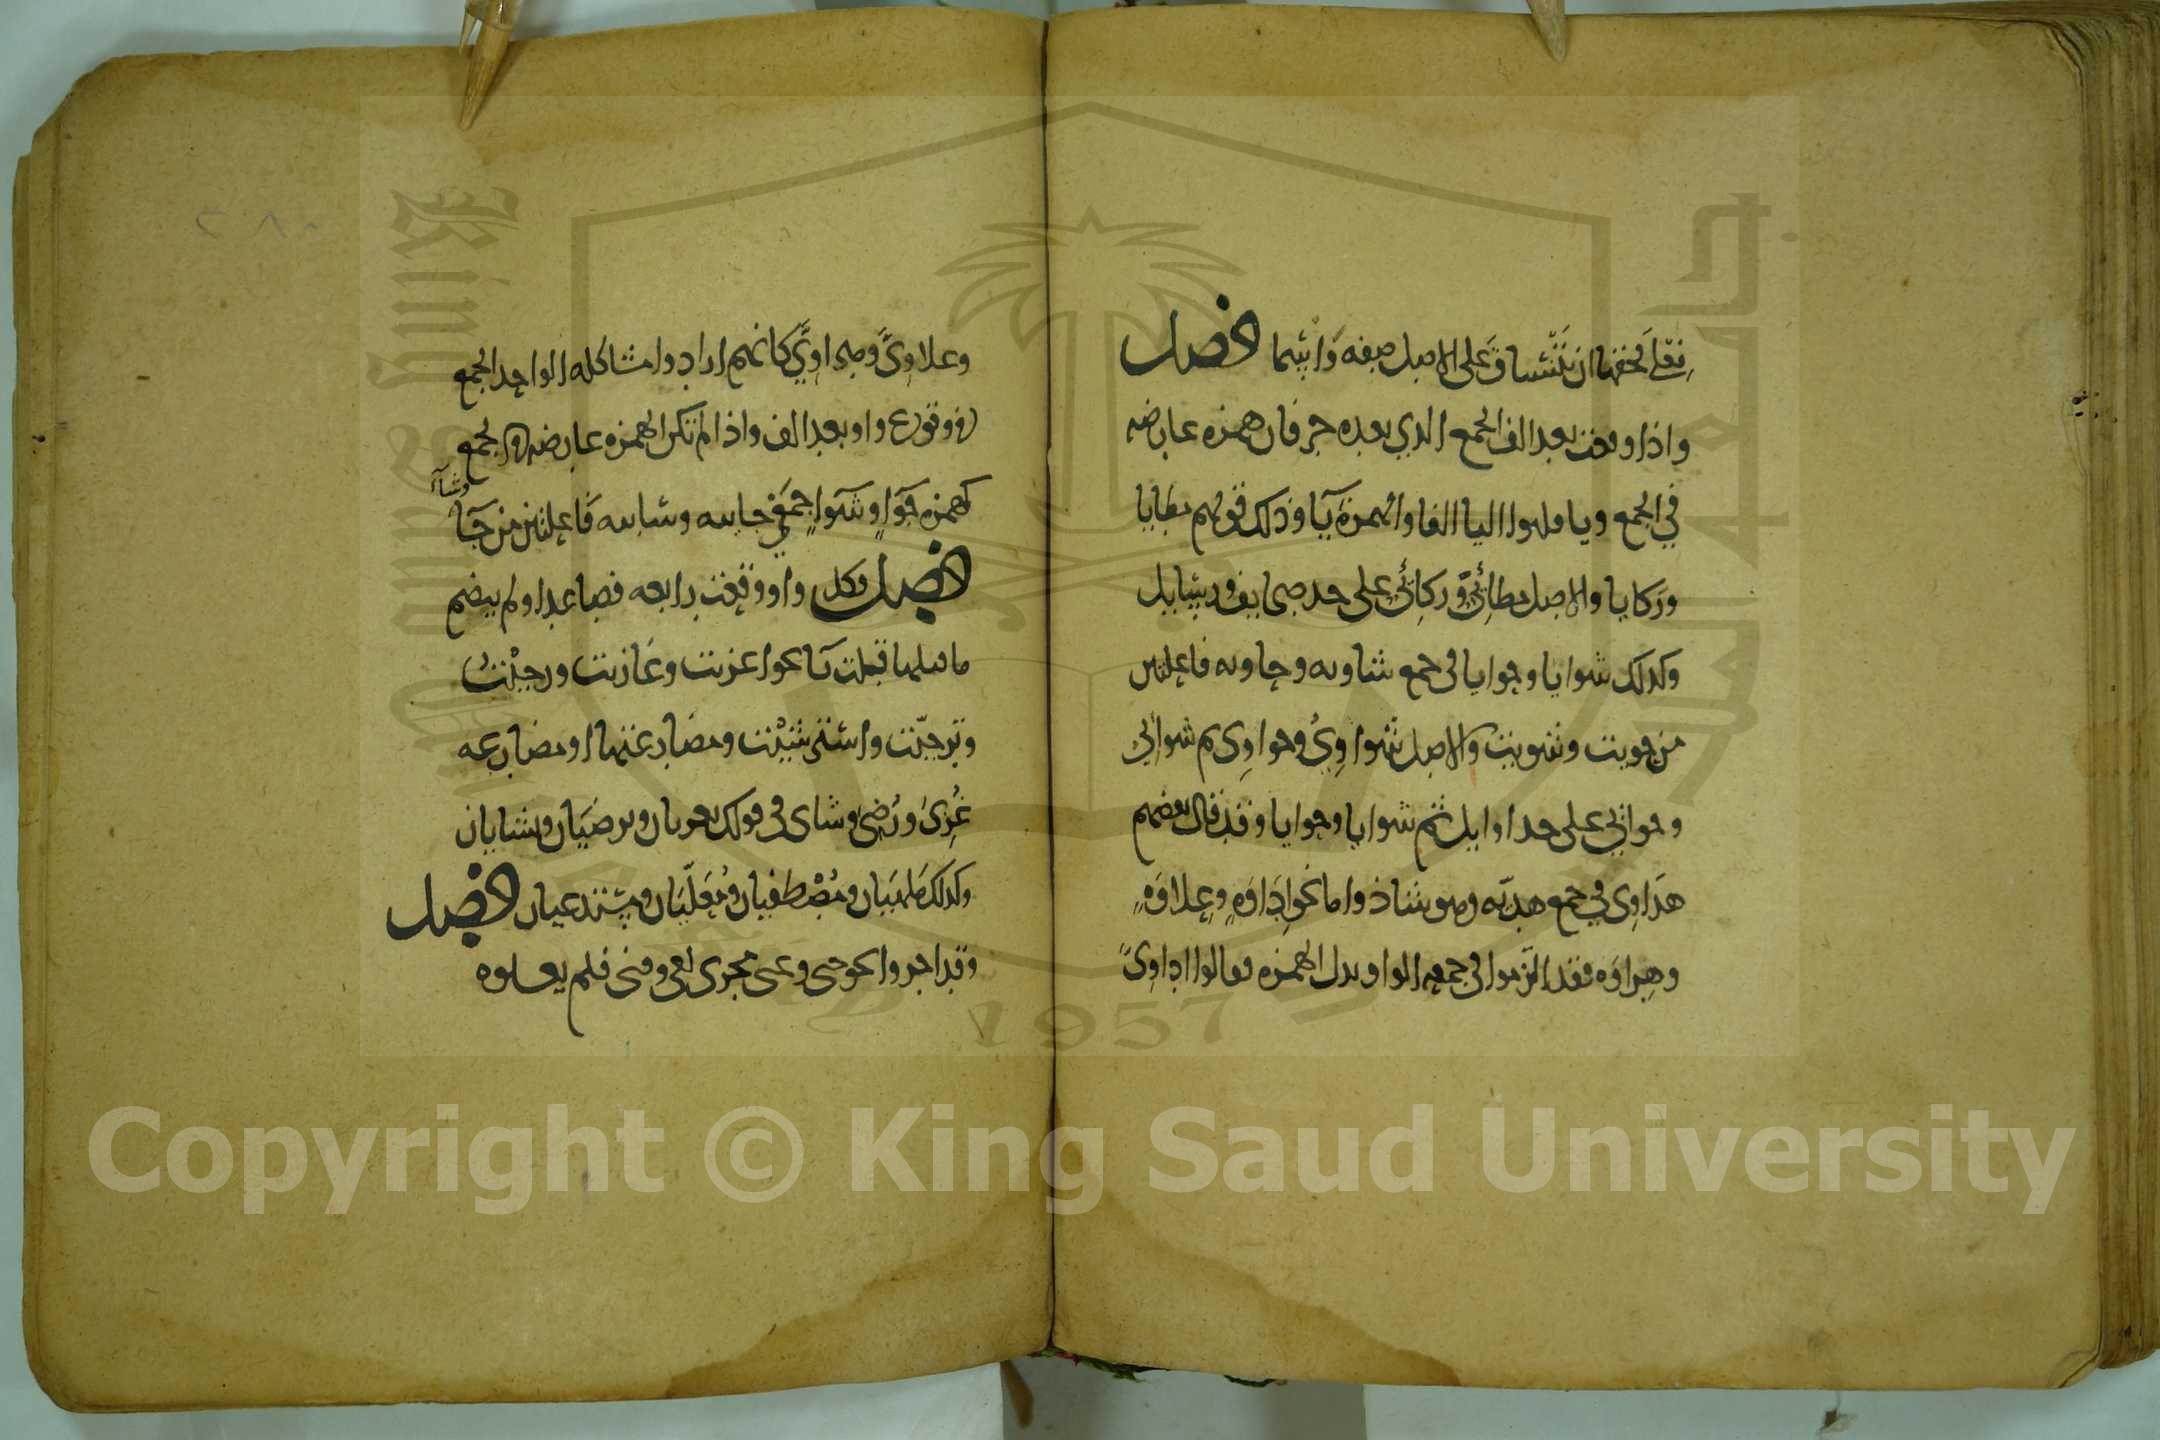 فعلى فحقها ان تنساق على الاصل صفه واسما فصل
واذا وقعت بعد الف الجمع الذي بعده حرفان همزه عارضه
في الجمع ويا قلبوا اليا الفا والهمزة يآ وذلك قولهم مطايا
وركايا والاصل مطائي وركائي على حد صحايف ورسايل
وكذلك شوايا وحوايا في جمع شاويه وحاويه فاعلتين
من حويت وشويت والاصل شواوي وحواوي ثم شوائي
وحوائي على حد اوايل ثم شوايا وحوايا وقد قال بعضهم
هداوى في جمع هديه وهو شاذ واما نحو اداوه وعلاوه
وهراوه فقد الزموا في جمعه الواو بدل الهمزه فقالوا اداوى
وعلاوى وهراوى كانهم ارادوا مشاكله الواحد الجمع
في وقوع واو بعد الف واذا لم تكن الهمزه عارضه في الجمع
كهمزه جواء وشواء جمعي جايه وشايه فاعلتين من جآ
وشآ
فصل وكل واو وقعت رابعه فصاعدا ولم ينضم
ما قبلها قلبت يا نحو اغزيت وغازيت ورجيت
وترجيت واسترشيت ومضارعتها ومضارعه
غزى ورضي وشاى في قولك يغزيان ويرضيان ويشايان
وكذلك ملهيان ومصطفيان ومعليان ومستدعيان فصل
وقد اجروا نحو حيي وعيي مجرى بقي وفني فلم يعلوه
٢٨٠
Copyright © King Saud University
1957